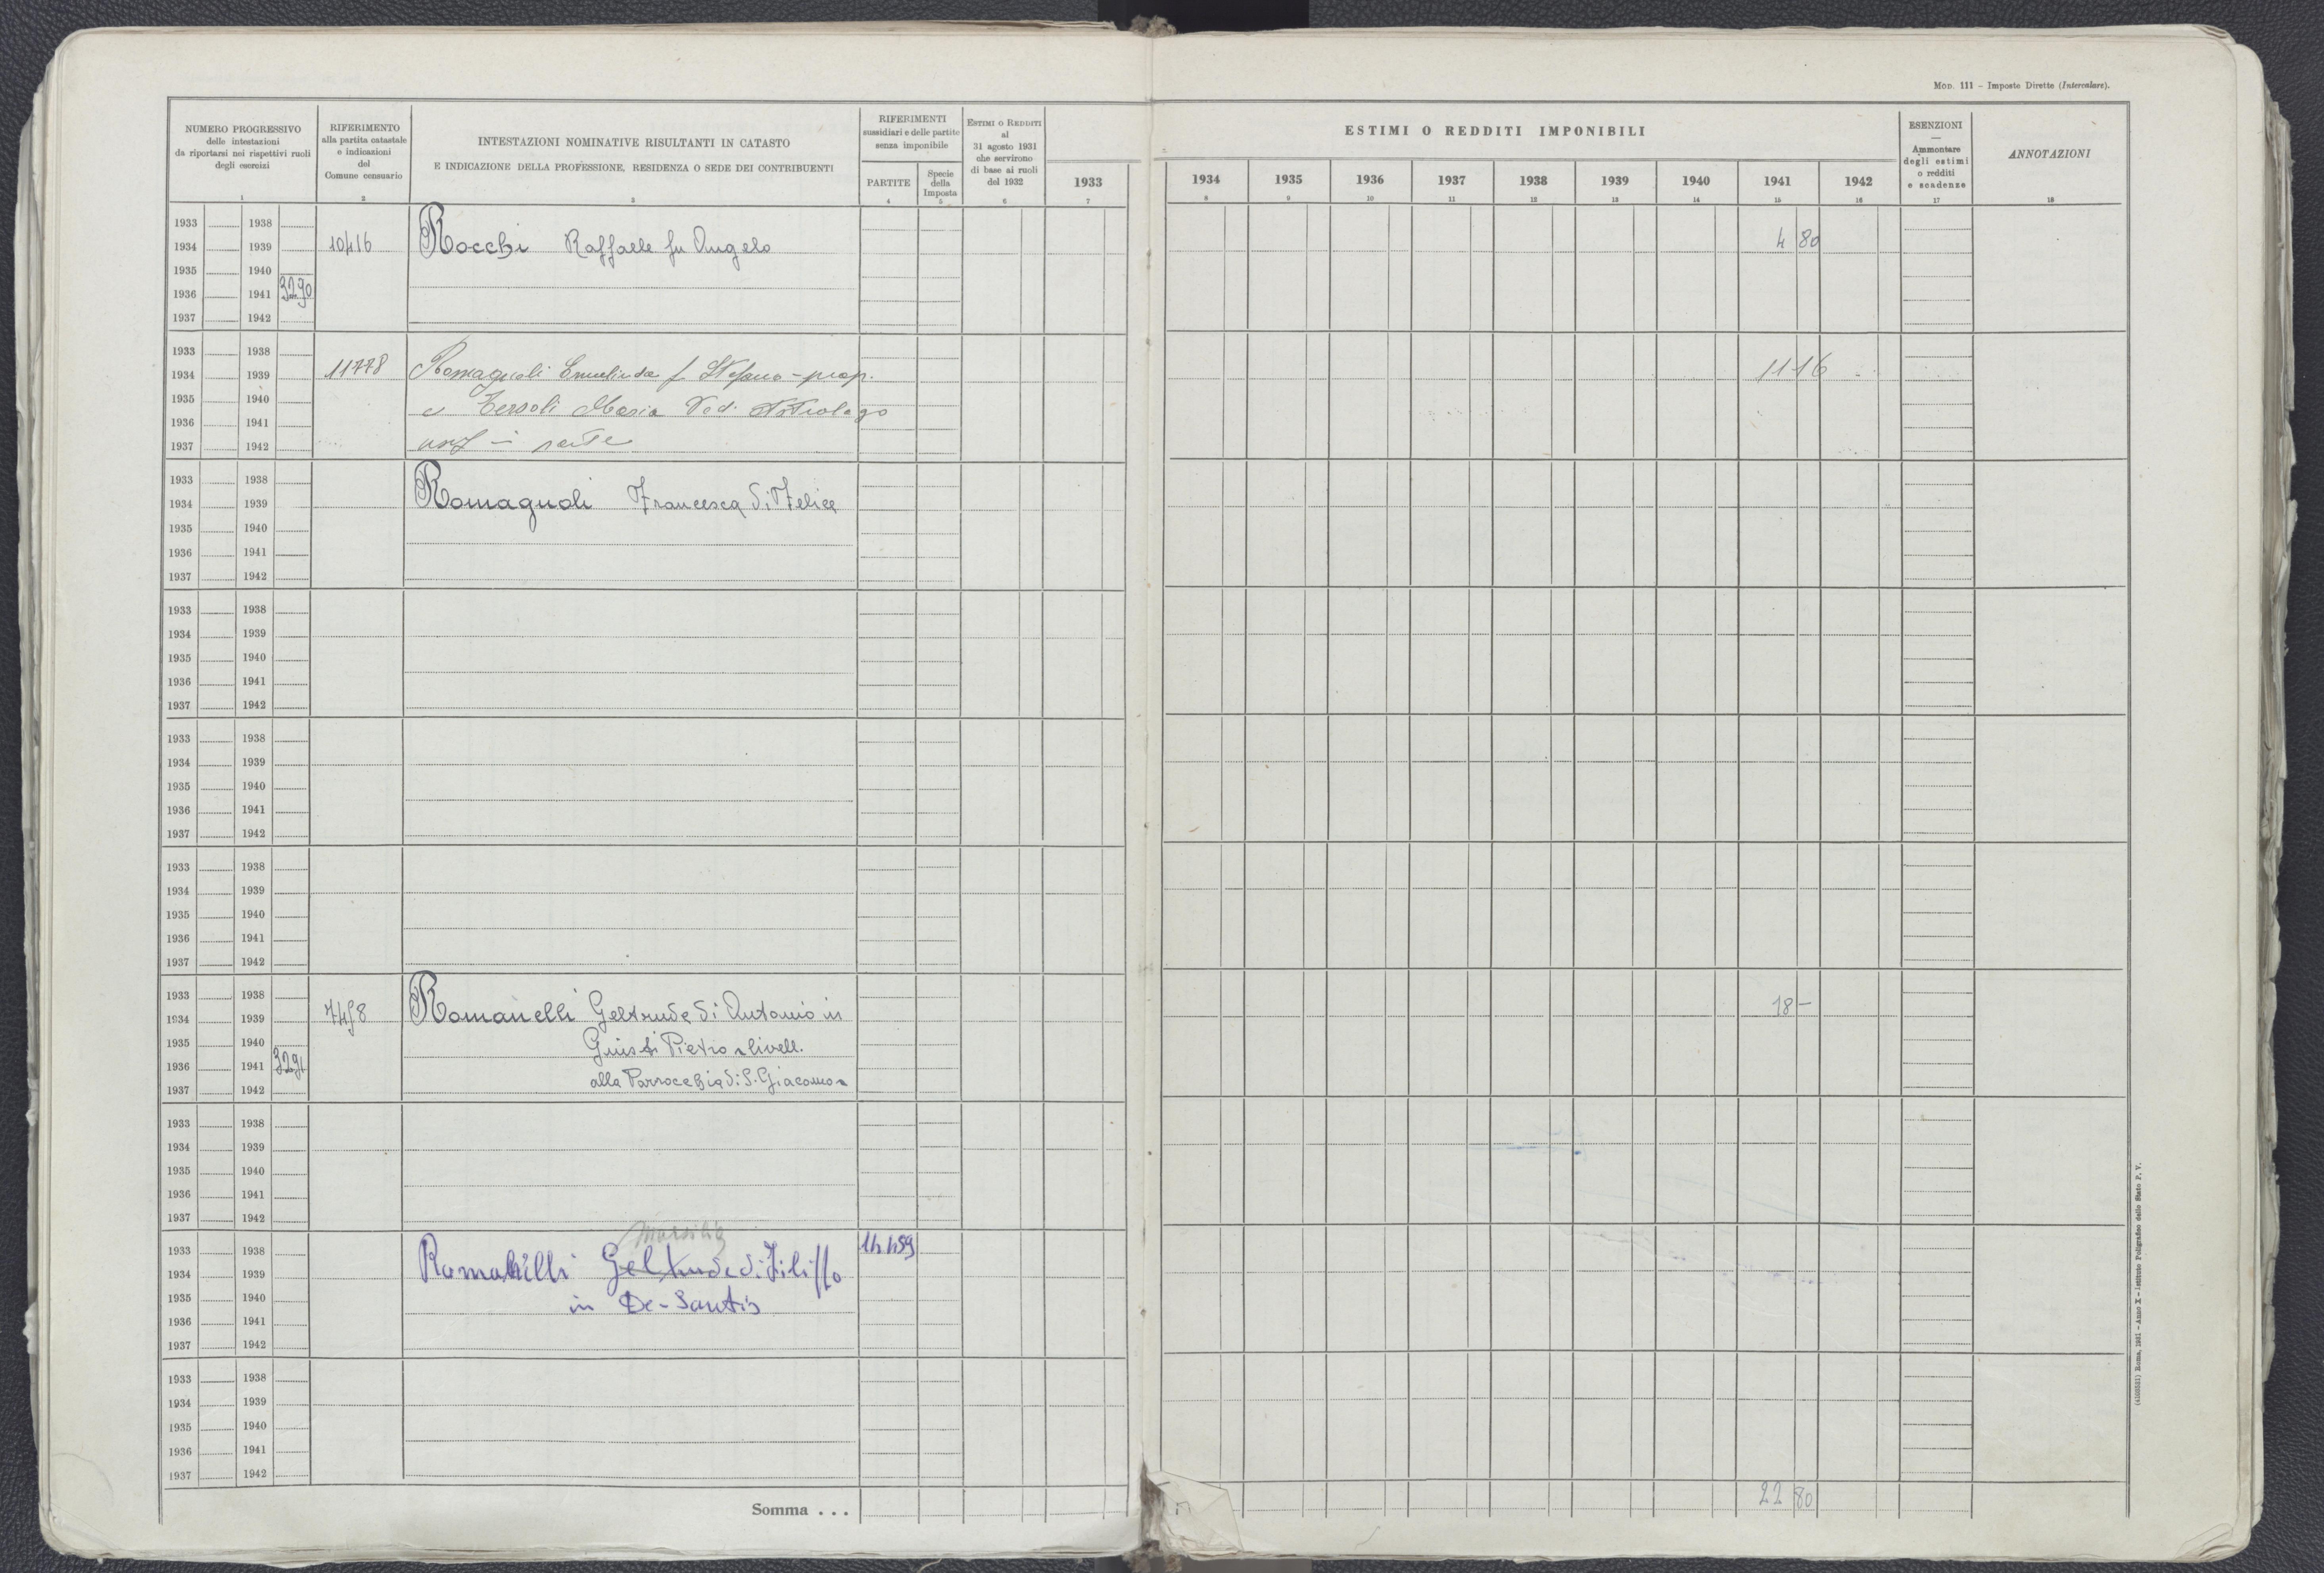 MOD. 111 – Imposte Dirette (Intercalare).
NUMERO PROGRESSIVO
delle intestazioni
da riportarsi nei rispettivi ruoli
degli esercizi
1
RIFERIMENTO
alla partita catastale
e indicazioni
del
Comune censuario
2
INTESTAZIONI NOMINATIVE RISULTANTI IN CATASTO
E INDICAZIONE DELLA PROFESSIONE, RESIDENZA O SEDE DEI CONTRIBUENTI
3
RIFERIMENTI
sussidiari e delle partite
senza imponibile
PARTITE
4
Specie
della
Imposta
5
ESTIMI O REDDITI
al
31 agosto 1931
che servirono
di base ai ruoli
del 1932
6
1933
7
ESTIMI O REDDITI IMPONIBILI
1934 1935 1936 1937 1938 1939 1940 1941 1942
8 9 10 11 12 13 14 15 16
ESENZIONI
—
Ammontare
degli estimi
o redditi
e scadenze
17
ANNOTAZIONI
18
1933 1938
1934 1939 10416 Rocchi Raffaele fu Angelo 4 80
1935 1940
1936 1941 3290
1937 1942
1933 1938
1934 1939 11778 Romagnoli Ermelinda f Stefano – prop. 11 16
1935 1940 e Maria Ved.
1936 1941
1937 1942 in parte
1933 1938
1934 1939 Romagnoli Francesca di Felice
1935 1940
1936 1941
1937 1942
1933 1938
1934 1939
1935 1940
1936 1941
1937 1942
1933 1938
1934 1939
1935 1940
1936 1941
1937 1942
1933 1938
1934 1939
1935 1940
1936 1941
1937 1942
1933 1938
1934 1939 7498 Romanelli Geltrude di Antonio in 18 –
1935 1940 Giusti Pietro livell.
1936 1941 3291
1937 1942 alla Parrocchia di S. Giacomo
1933 1938
1934 1939
1935 1940
1936 1941
1937 1942
Marsilia
1933 1938 14499
1934 1939 Romanelli Geltrude di Filippo
1935 1940 in De-Santis
1936 1941
1937 1942
1933 1938
1934 1939
1935 1940
1936 1941
1937 1942
Somma . . . 22 80
(4103581) Roma, 1931 – Anno X – Istituto Poligrafico dello Stato P. V.